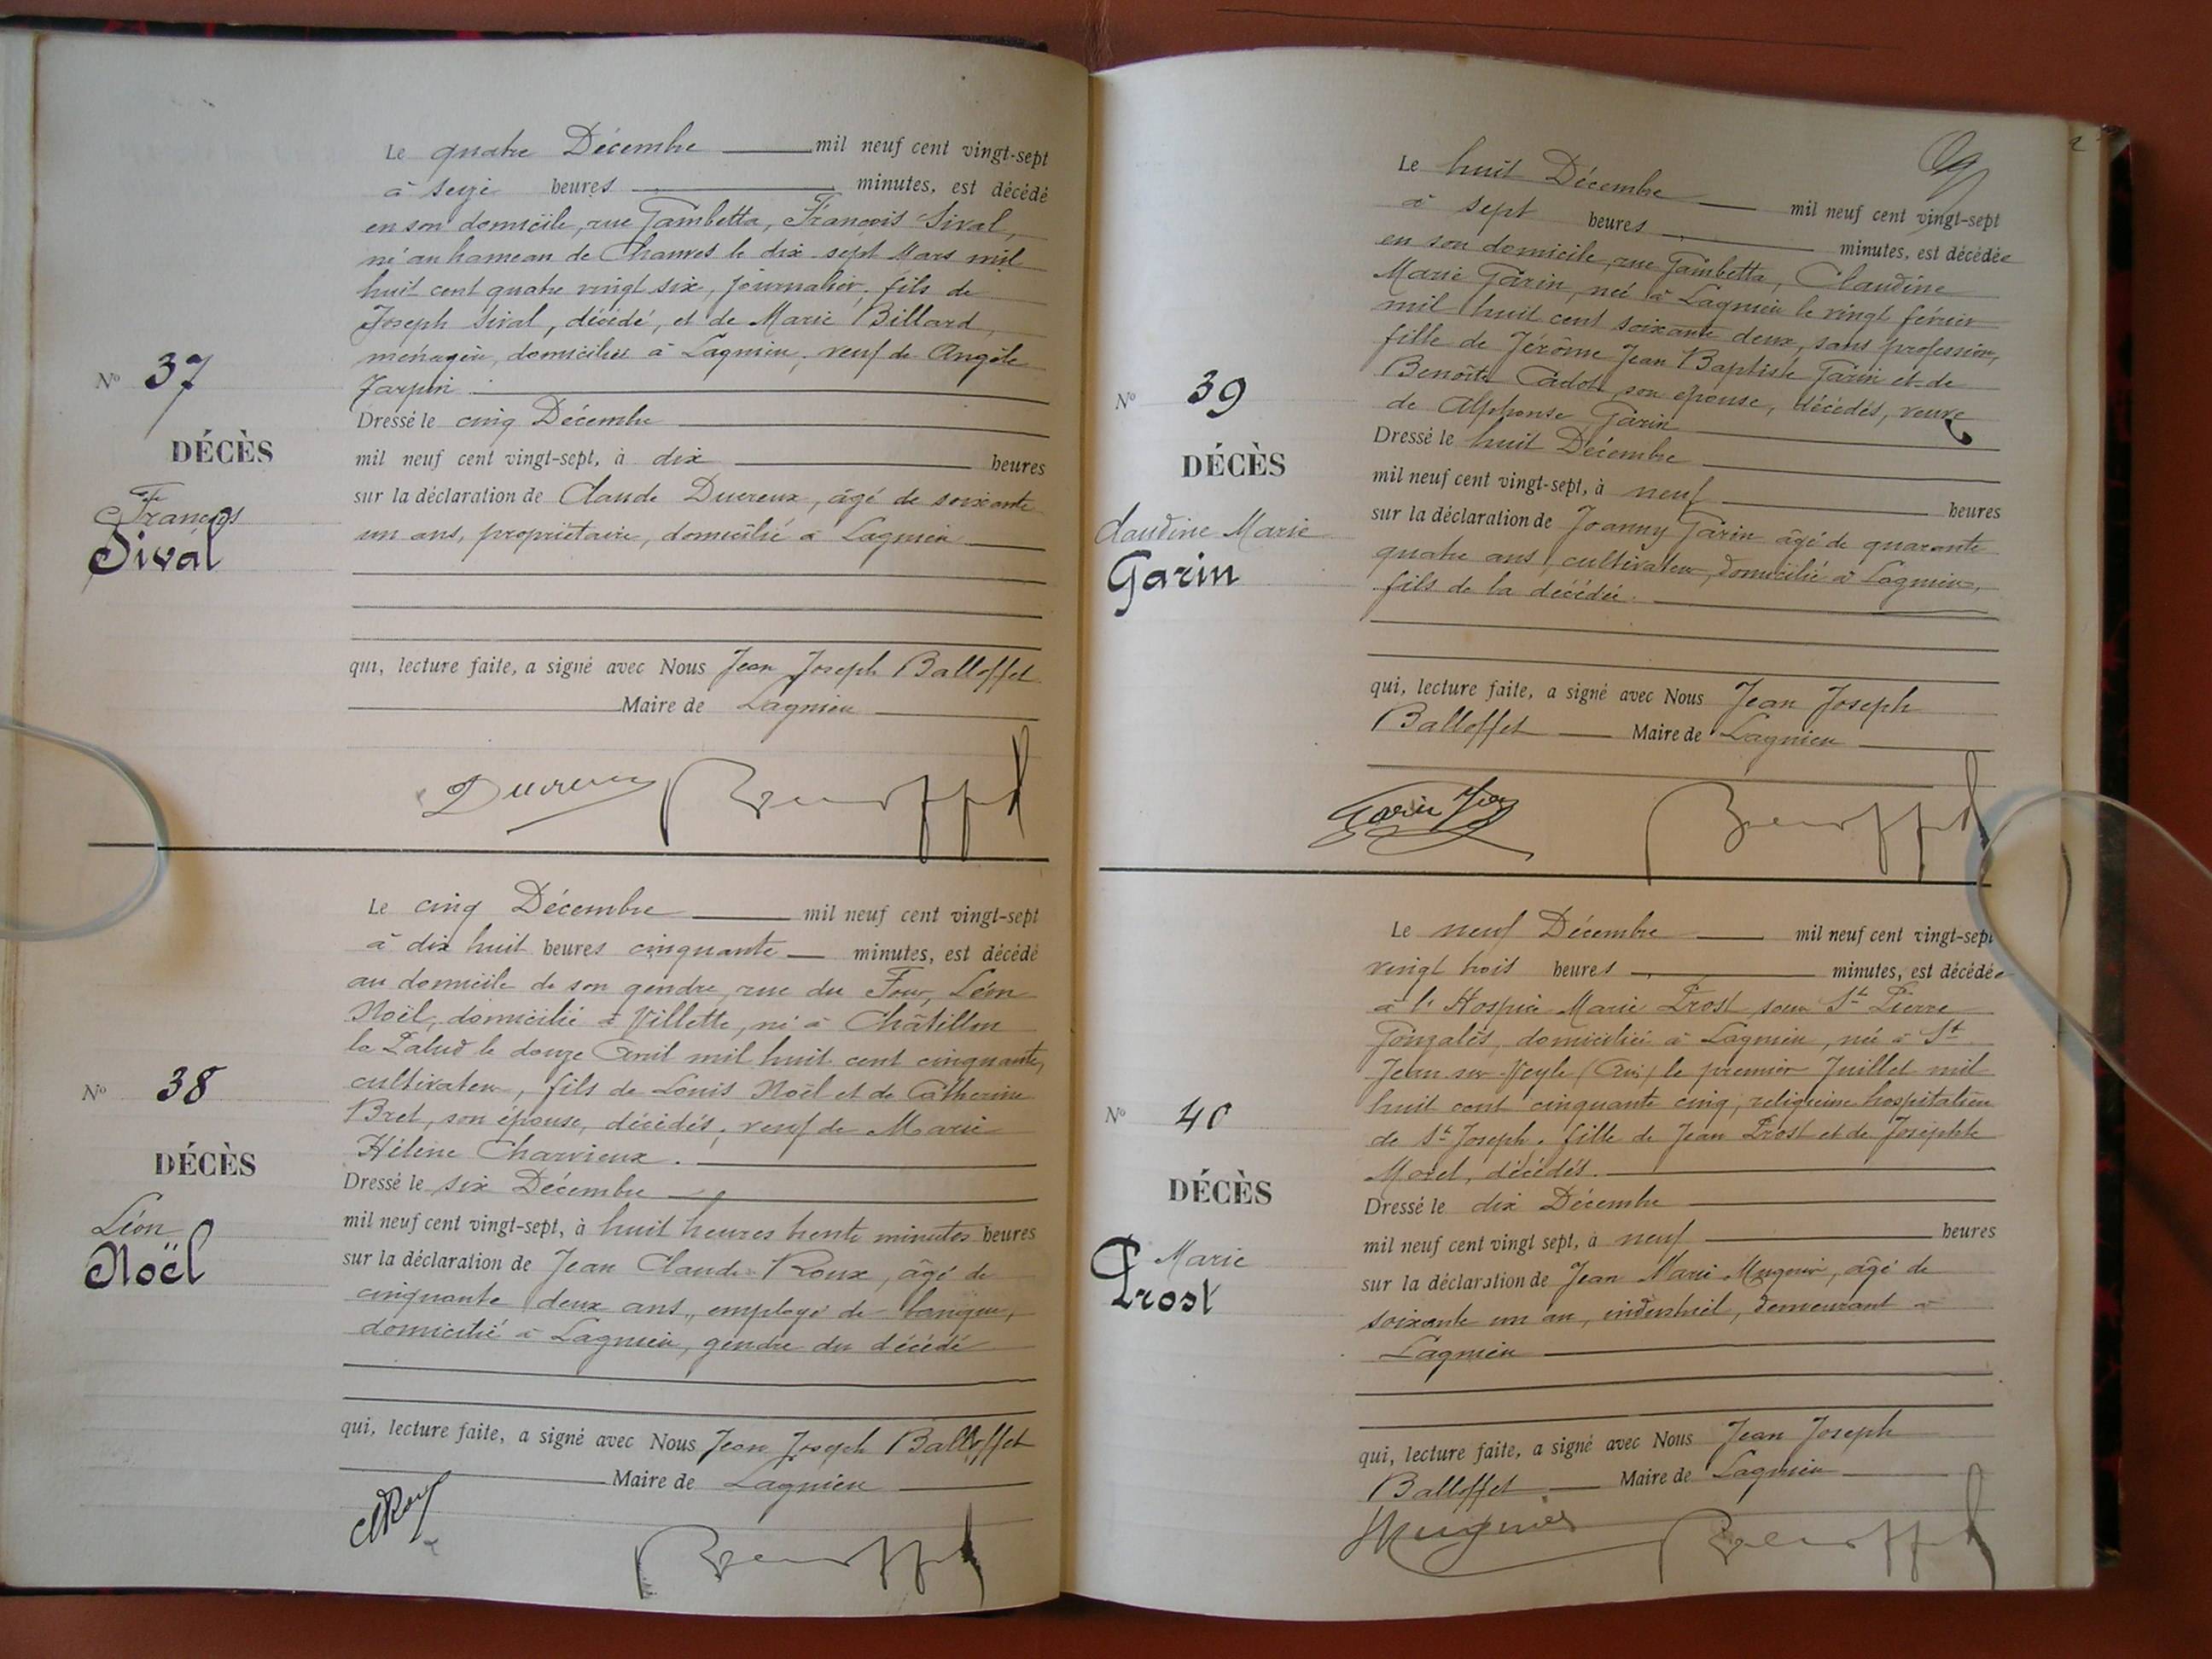 Le quatre Décembre mil neuf cent vingt-sept
à seize heures minutes, est décédé
en son domicile, rue Gambetta, François Sival,
né au hameau de Charves le dix sept Mars mil
huit cent quatre vingt six, journalier, fils de
Joseph Sival, décédé, et de Marie Billard,
ménagère, domiciliée à Lagnieu, veuf de Angèle
Jarpin
Nº 37
DÉCÈS
François
Sival
Dressé le cinq Décembre
mil neuf cent vingt-sept, à dix heures
sur la déclaration de Claude Ducreux, âgé de soixante
un ans, propriétaire, domicilié à Lagnieu
qui, lecture faite, a signé avec Nous Jean Joseph Balloffet
Maire de Lagnieu
Ducreux Balloffet
Le cinq Décembre mil neuf cent vingt-sept
à dix huit heures cinquante minutes, est décédé
au domicile de son gendre, rue du Four, Léon
Noël, domicilié à Villette, né à Châtillon
la Palud le douze Avril mil huit cent cinquante,
cultivateur, fils de Louis Noël et de Catherine
Bret, son épouse, décédés, veuf de Marie
Hélène Charvieux.
Nº 38
DÉCÈS
Léon
Noël
Dressé le six Décembre
mil neuf cent vingt-sept, à huit heures trente minutes heures
sur la déclaration de Jean Claude Roux, âgé de
cinquante deux ans, employé de banque,
domicilié à Lagnieu, gendre du décédé
qui, lecture faite, a signé avec Nous Jean Joseph Balloffet
Maire de Lagnieu
Balloffet
Le huit Décembre mil neuf cent vingt-sept
à sept heures minutes, est décédée
en son domicile, rue Gambetta, Claudine
Marie Garin, née à Lagnieu le vingt février
mil huit cent soixante deux, sans profession,
fille de Jérôme Jean Baptiste Garin et de
Benoîte Cadot, son épouse, décédés, veuve
de Alphonse Garin
Nº 39
DÉCÈS
Claudine Marie
Garin
Dressé le huit Décembre
mil neuf cent vingt-sept, à neuf heures
sur la déclaration de Joanny Garin âgé de quarante
quatre ans, cultivateur, domicilié à Lagnieu,
fils de la décédée.
qui, lecture faite, a signé avec Nous Jean Joseph
Balloffet Maire de Lagnieu
Garin Balloffet
Le neuf Décembre mil neuf cent vingt-sept
vingt trois heures minutes, est décédée
à l'Hospice Marie Prost sœur St Pierre
Gonzalès, domiciliée à Lagnieu, née à St
Jean sur Veyle (Ain) le premier Juillet mil
huit cent cinquante cinq, religieuse hospitalière
de St Joseph, fille de Jean Prost et de Josephte
Morel, décédés.
Nº 40
DÉCÈS
Marie
Prost
Dressé le dix Décembre
mil neuf cent vingt sept, à neuf heures
sur la déclaration de Jean Marie Mugnier, âgé de
soixante un an, industriel, demeurant à
Lagnieu
qui, lecture faite, a signé avec Nous Jean Joseph
Balloffet Maire de Lagnieu
Mugnier Balloffet